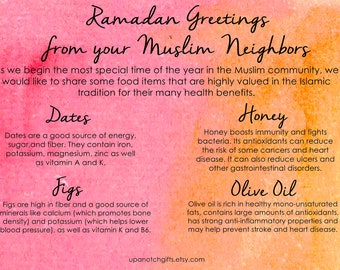 Ramadan Greetings
from your Muslim Neighbors
s we begin the most special time of the year in the Muslim community, we
would like to share some food items that are highly valued in the Islamic
tradition for their many health benefits.
Dates
Dates are a good source of energy,
sugar,and fiber. They contain iron,
potassium, magnesium, zinc as well
as vitamin A and K.
Honey
Honey boosts immunity and fights
bacteria. Its antioxidants can reduce
the risk of some cancers and heart
disease. It can also reduce ulcers and
other gastrointestinal disorders.
Figs
Figs are high in fiber and a good source of
minerals like calcium (which promotes bone
density) and potassium (which helps lower
blood pressure), as well as vitamin K and B6.
Olive Oil
Olive oil is rich in healthy mono-unsaturated
fats, contains large amounts of antioxidants,
has strong anti-inflammatory properties and
may help prevent stroke and heart disease.
upanotchgifts.etsy.com